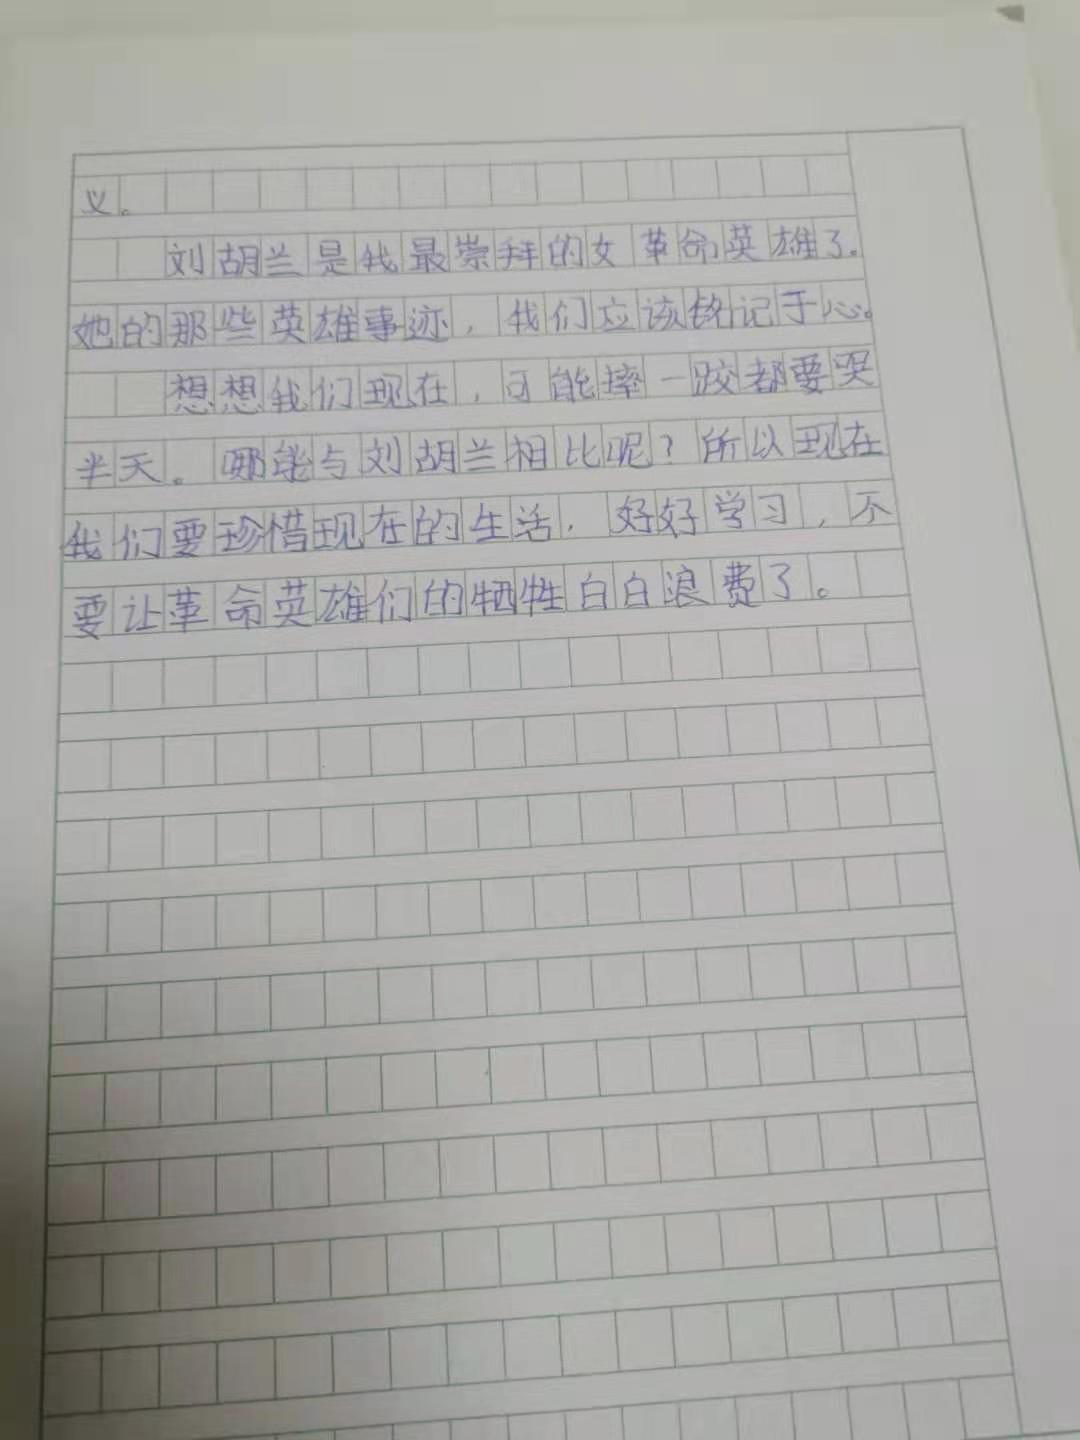 义。
刘胡兰是我最崇拜的女革命英雄了。
她的那些英雄事迹，我们应该铭记于心。
想想我们现在，可能摔一跤都要哭
半天。哪能与刘胡兰相比呢？所以现在
我们要珍惜现在的生活，好好学习，不
要让革命英雄们的牺牲白白浪费了。